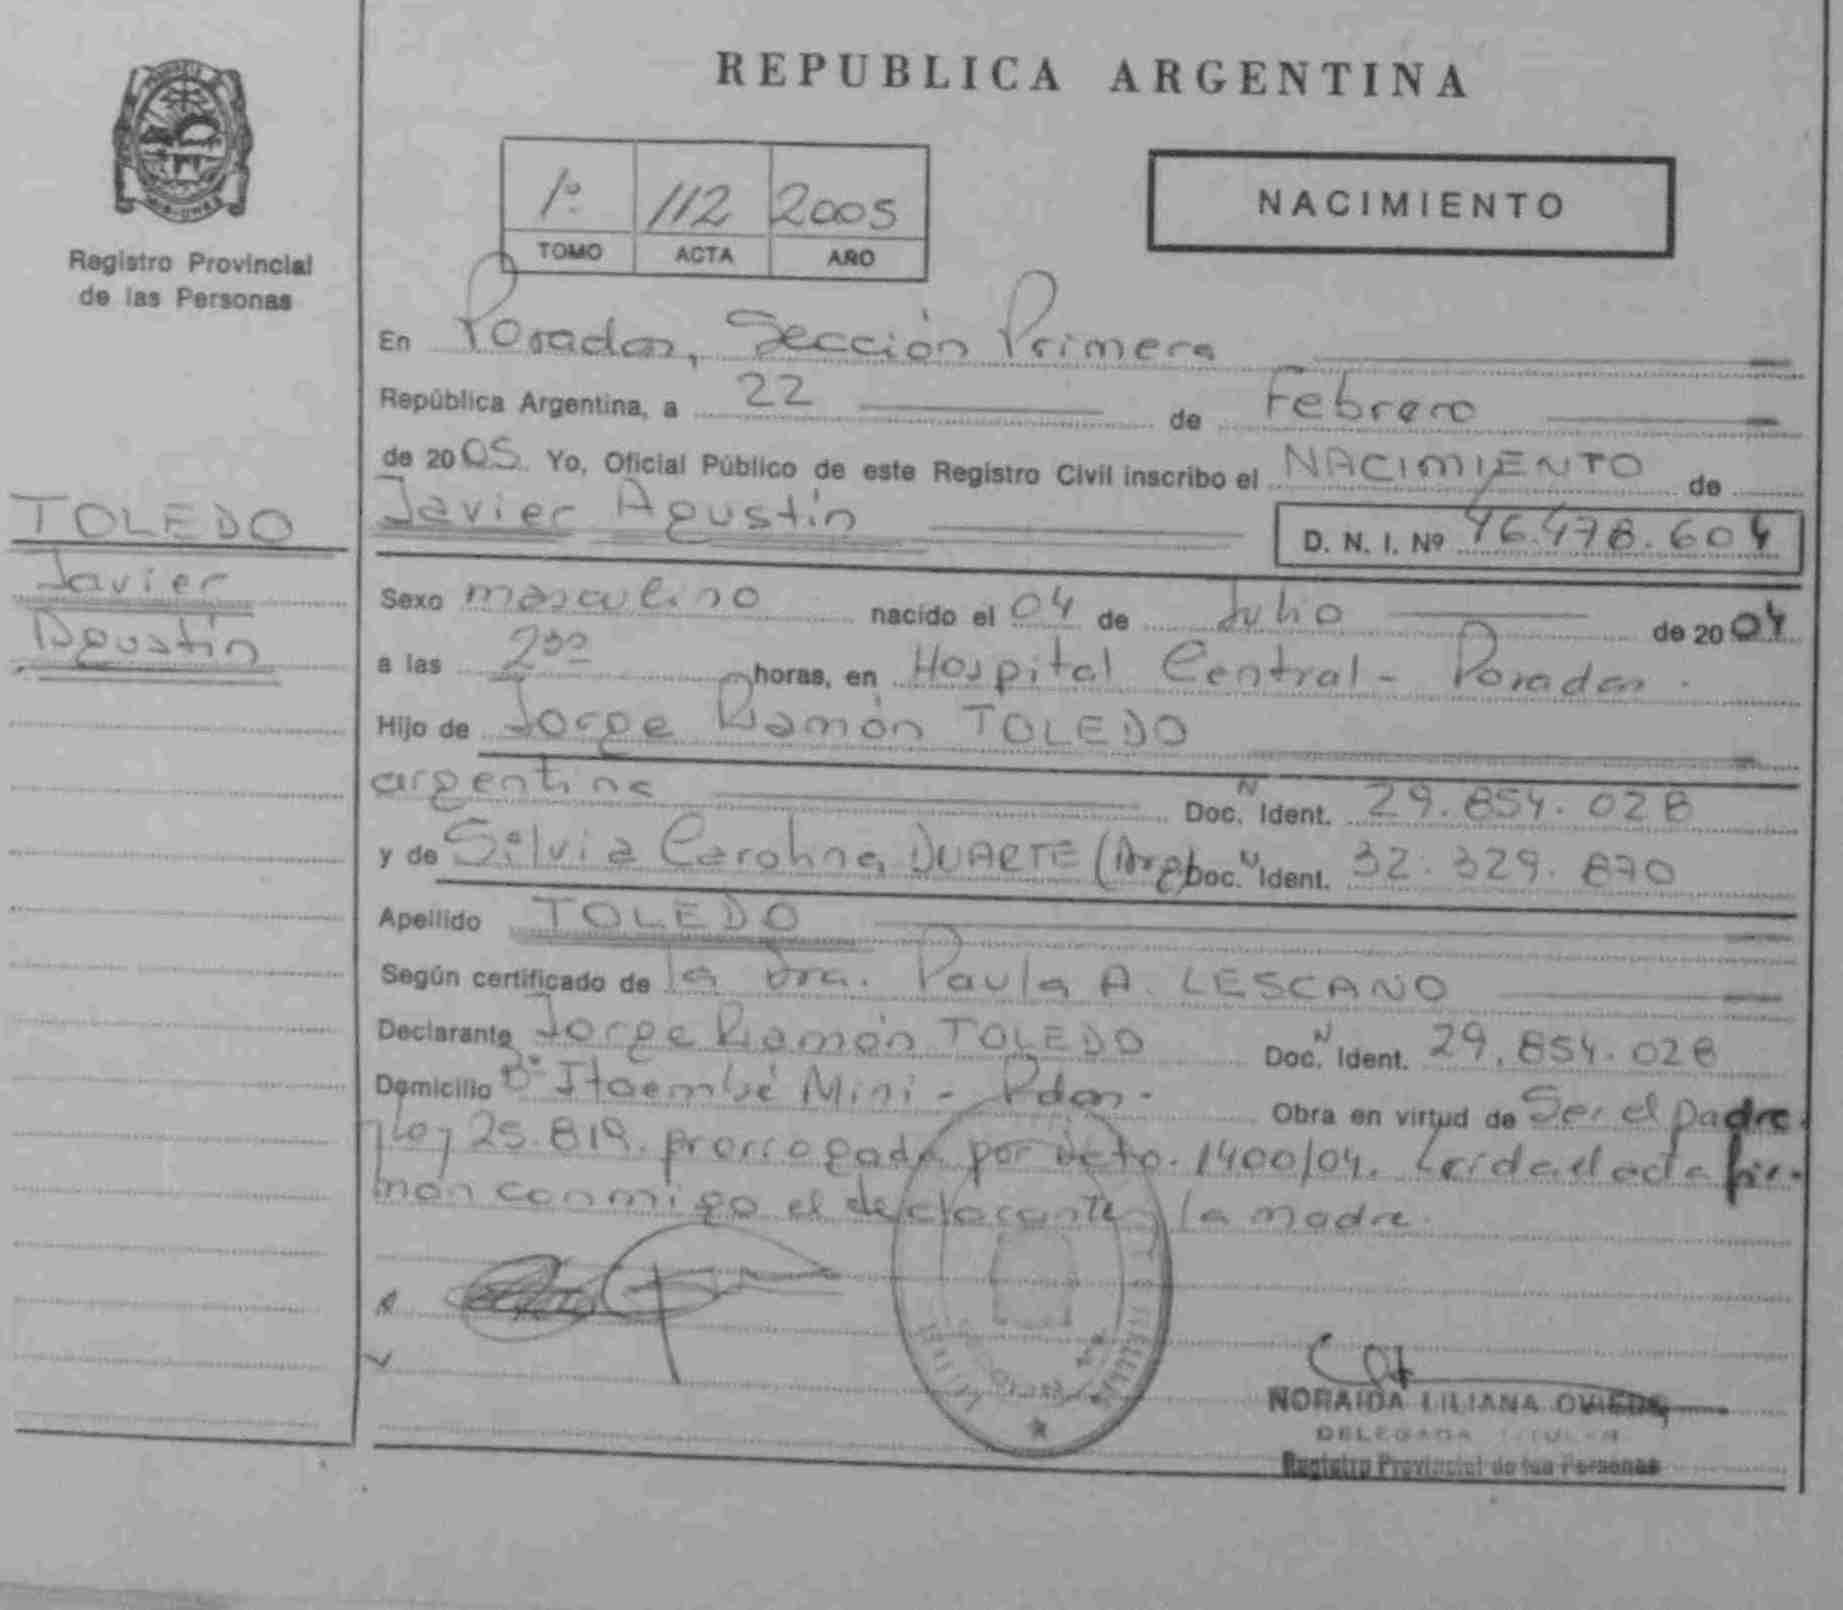 REPUBLICA ARGENTINA
Registro Provincial
de las Personas
1º 112 2005
TOMO ACTA AÑO
NACIMIENTO
En Posadas, Sección Primera
República Argentina, a 22 de Febrero
de 2005 Yo, Oficial Público de este Registro Civil inscribo el NACIMIENTO de
Javier Agustín
D. N. I. Nº 46.478.604
TOLEDO
Javier
Agustín
Sexo masculino nacido el 04 de Julio de 2004
a las horas, en Hospital Central - Posadas.
Hijo de Jorge Ramón TOLEDO
argentina Doc. N Ident. 29.854.028
y de Silvia Carolina DUARTE (Arg) Doc. N Ident. 32.329.870
Apellido TOLEDO
Según certificado de la Dra. Paula A. LESCANO
Declarante Jorge Ramón TOLEDO Doc. N Ident. 29.854.028
Domicilio Bº Itaembé Mini - Pdas. Obra en virtud de Ser el padre.
Ley 25.819. prorrogada por Dcto. 1400/04. Leida el acta fir-
man conmigo el declarante y la madre.
NORAIDA LILIANA OVIEDO
DELEGADA TITULAR
Registro Provincial de las Personas